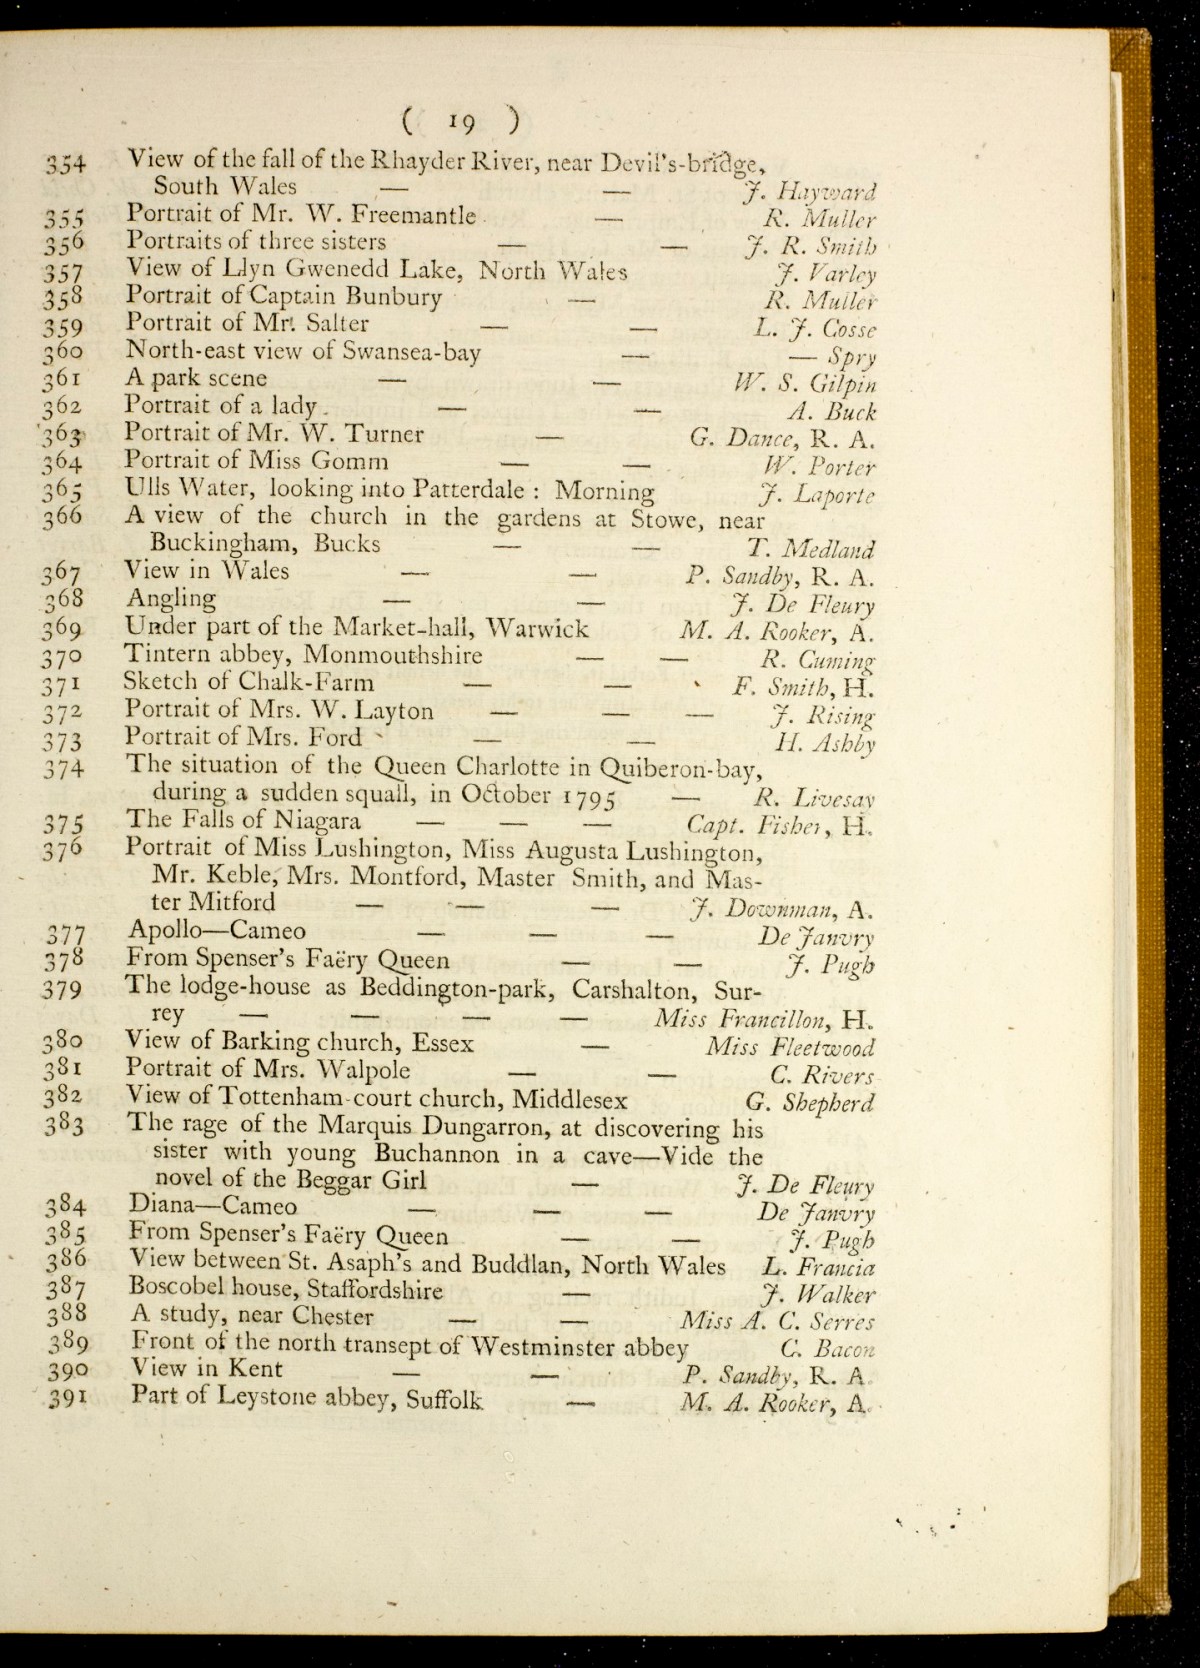 ( 19 )
354 View of the fall of the Rhayder River, near Devil's-bridge,
South Wales — — J. Hayward
355 Portrait of Mr. W. Freemantle — R. Muller
356 Portraits of three sisters — — J. R. Smith
357 View of Llyn Gwenedd Lake, North Wales J. Varley
358 Portrait of Captain Bunbury — R. Muller
359 Portrait of Mr. Salter — — L. J. Cosse
360 North-east view of Swansea-bay — — Spry
361 A park scene — — W. S. Gilpin
362 Portrait of a lady — — A. Buck
363 Portrait of Mr. W. Turner — G. Dance, R. A.
364 Portrait of Miss Gomm — — W. Porter
365 Ulls Water, looking into Patterdale : Morning J. Laporte
366 A view of the church in the gardens at Stowe, near
Buckingham, Bucks — — T. Medland
367 View in Wales — — P. Sandby, R. A.
368 Angling — — J. De Fleury
369 Under part of the Market-hall, Warwick M. A. Rooker, A.
370 Tintern abbey, Monmouthshire — — R. Cuming
371 Sketch of Chalk-Farm — — F. Smith, H.
372 Portrait of Mrs. W. Layton — — — J. Rising
373 Portrait of Mrs. Ford — — H. Ashby
374 The situation of the Queen Charlotte in Quiberon-bay,
during a sudden squall, in October 1795 — R. Livesay
375 The Falls of Niagara — — — Capt. Fisher, H.
376 Portrait of Miss Lushington, Miss Augusta Lushington,
Mr. Keble, Mrs. Montford, Master Smith, and Mas-
ter Mitford — — — J. Downman, A.
377 Apollo—Cameo — — — De Janvry
378 From Spenser's Faëry Queen — — J. Pugh
379 The lodge-house as Beddington-park, Carshalton, Sur-
rey — — — — Miss Francillon, H.
380 View of Barking church, Essex — Miss Fleetwood
381 Portrait of Mrs. Walpole — — C. Rivers
382 View of Tottenham-court church, Middlesex G. Shepherd
383 The rage of the Marquis Dungarron, at discovering his
sister with young Buchannon in a cave—Vide the
novel of the Beggar Girl — J. De Fleury
384 Diana—Cameo — — — De Janvry
385 From Spenser's Faëry Queen — — J. Pugh
386 View between St. Asaph's and Buddlan, North Wales L. Francia
387 Boscobel house, Staffordshire — J. Walker
388 A study, near Chester — — Miss A. C. Serres
389 Front of the north transept of Westminster abbey C. Bacon
390 View in Kent — — P. Sandby, R. A.
391 Part of Leystone abbey, Suffolk — M. A. Rooker, A.